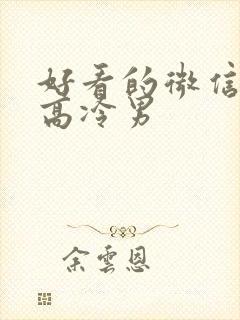 好看的微信
高冷男
余雲恩